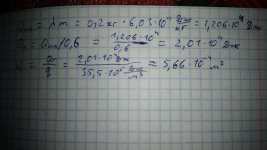 Qпл = λm = 0,2 кг · 6,03·10⁴ Дж/кг = 1,206·10⁴ Дж
Q₂ = Qпл/0,6 = 1,206·10⁴/0,6 = 2,01·10⁴ Дж
V₁ = Q₂/q = 2,01·10⁴ Дж/35,5·10⁶ Дж/м³ = 5,66·10⁻⁴ м³